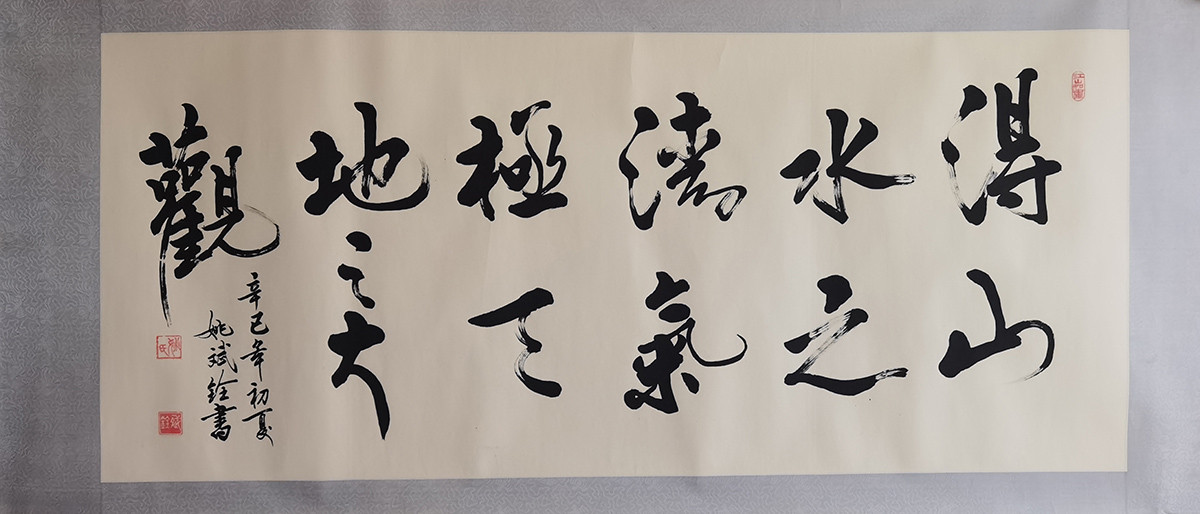 得山
水之
清氣
極天
地之大
觀
辛巳年初夏
姚斌銓書
姚氏